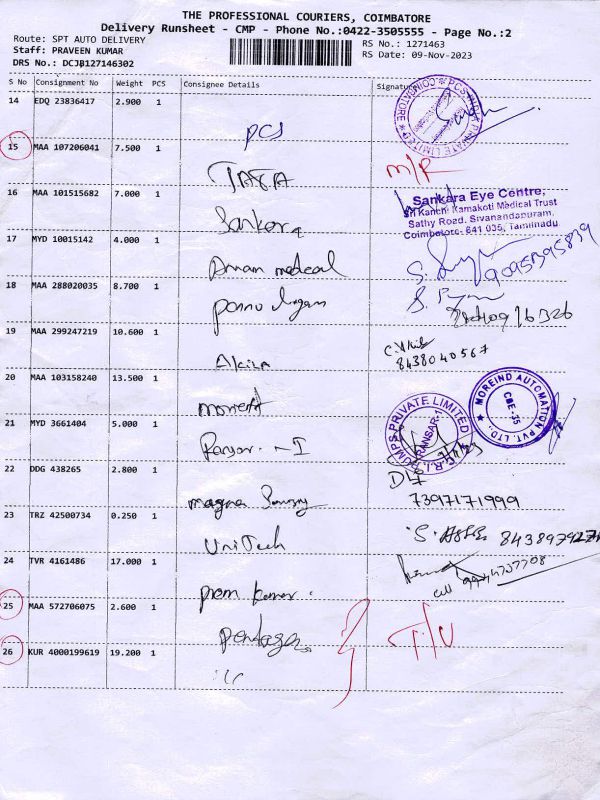 THE PROFESSIONAL COURIERS, COIMBATORE
Delivery Runsheet - CMP - Phone No.:0422-3505555 - Page No.:2
Route: SPT AUTO DELIVERY
RS No.: 1271463
Staff: PRAVEEN KUMAR
RS Date: 09-Nov-2023
DRS No.: DCJB127146302
S No Consignment No Weight PCS Consignee Details Signature
14 EDQ 23836417 2.900 1
PCS
15 MAA 107206041 7.500 1
M/R
16 MAA 101515682 7.000 1
Sankara
Sankara Eye Centre,
Sri Kanchi Kamakoti Medical Trust
Sathy Road, Sivanandapuram,
Coimbatore- 641 035, Tamilnadu
17 MYD 10015142 4.000 1
Annam medical
9095395839
18 MAA 288020035 8.700 1
19 MAA 299247219 10.600 1
8438040567
20 MAA 103158240 13.500 1
MOREIND AUTOMATION PVT. LTD.
CBE-35
21 MYD 3661404 5.000 1
22 DDG 438265 2.800 1
magna
7397171999
23 TRZ 42500734 0.250 1
UniTech
24 TVR 4161486 17.000 1
prem kumar
25 MAA 572706075 2.600 1
T/U
26 KUR 4000199619 19.200 1